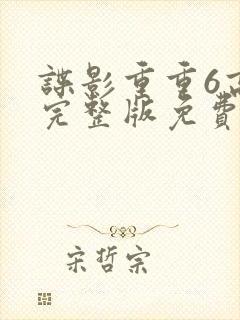 諜影重重6高
完整版免費
宋哲宗